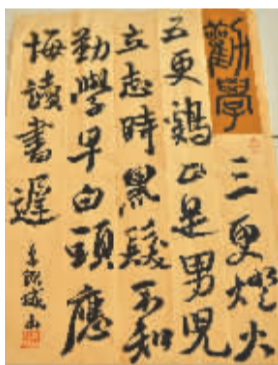 勸學
三更燈火
五更鷄正是男児
立志時黑髮不知
勤學早白頭應
悔讀書遲